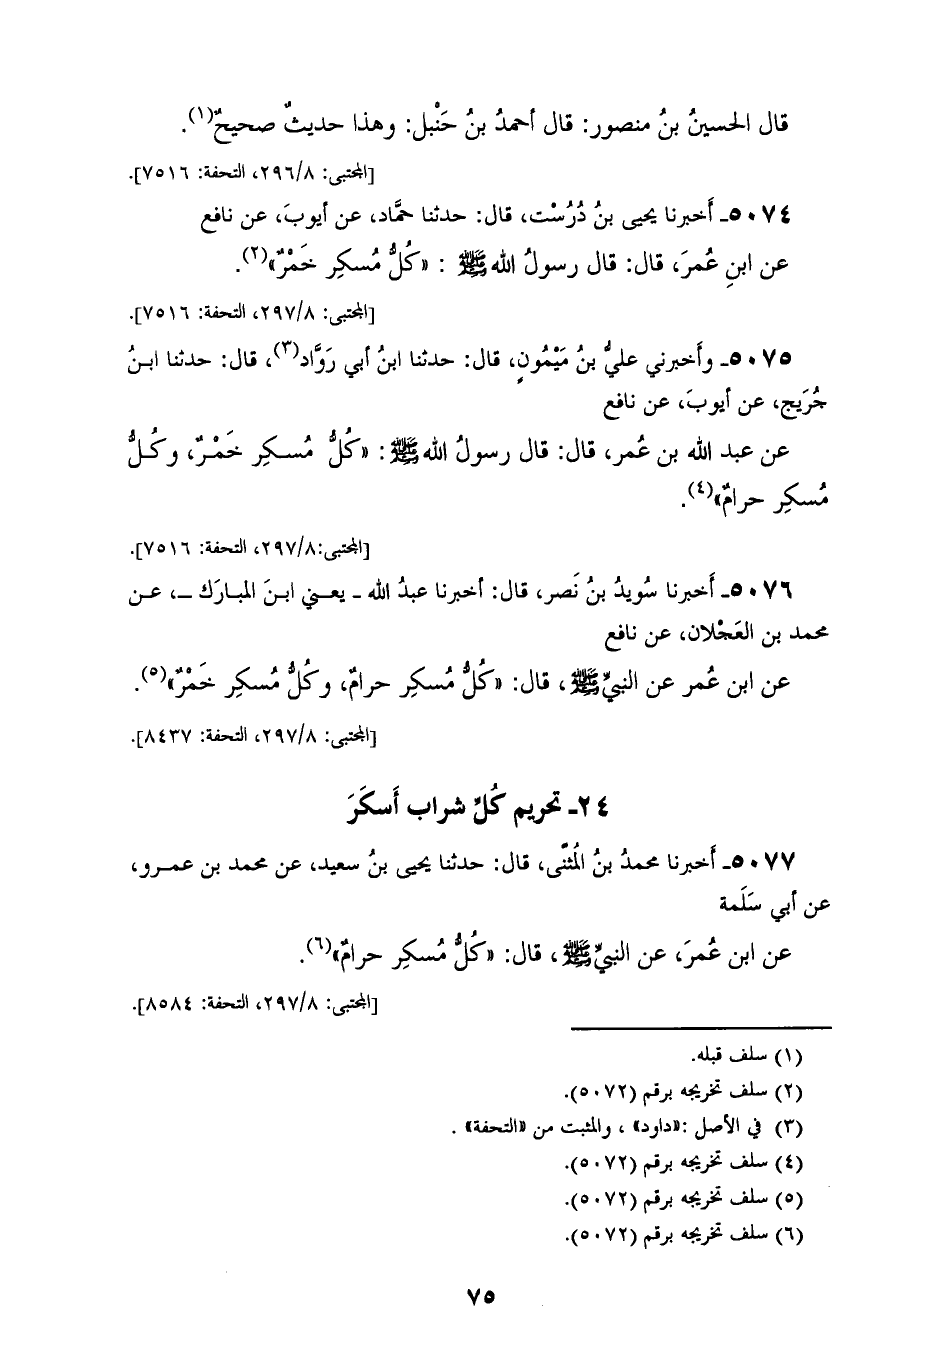 قال الحسينُ بنُ منصور: قال أحمدُ بنُ حَنْبل: وهذا حديثٌ صحيحٌ(١).
[المجتبى: ٢٩٦/٨، التحفة: ٧٥١٦].
٥٠٧٤ـ أَخبرنا يحيى بنُ دُرُسْت، قال: حدثنا حمَّاد، عن أيوبَ، عن نافع
عن ابنِ عُمرَ، قال: قال رسولُ الله ﷺ : «كُلُّ مُسكِر خَمْرٌ»(٢).
[المجتبى: ٢٩٧/٨، التحفة: ٧٥١٦].
٥٠٧٥ـ وأَخبرني عليُّ بنُ مَيْمُونٍ، قال: حدثنا ابنُ أبي رَوَّاد(٣)، قال: حدثنا ابـنُ
جُرَيج، عن أيوبَ، عن نافع
عن عبد الله بن عُمر، قال: قال رسولُ الله ﷺ : «كُلُّ مُسـكِر خَمْـرٌ، وكُـلُّ
مُسكِر حرامٌ»(٤).
[المجتبى:٢٩٧/٨، التحفة: ٧٥١٦].
٥٠٧٦ـ أَخبرنا سُويدُ بنُ نَصر، قال: أخبرنا عبدُ الله ـ يعـني ابـنَ المبـارَك ـ، عـن
محمد بن العَجْلان، عن نافع
عن ابن عُمر عن النبيِّ ﷺ ، قال: «كُلُّ مُسكِر حرامٌ، وكُلُّ مُسكِر خَمْرٌ»(٥).
[المجتبى: ٢٩٧/٨، التحفة: ٨٤٣٧].
٢٤ـ تحريم كُلِّ شراب أَسكَرَ
٥٠٧٧ـ أَخبرنا محمدُ بنُ المُثنَّى، قال: حدثنا يحيى بنُ سعيد، عن محمد بن عمـرو،
عن أبي سَلَمة
عن ابن عُمرَ، عن النبيِّ ﷺ ، قال: «كُلُّ مُسكِر حرامٌ»(٦).
[المجتبى: ٢٩٧/٨، التحفة: ٨٥٨٤].
(١) سلف قبله.
(٢) سلف تخريجه برقم (٥٠٧٢).
(٣) في الأصل :«داود» ، والمثبت من «التحفة» .
(٤) سلف تخريجه برقم (٥٠٧٢).
(٥) سلف تخريجه برقم (٥٠٧٢).
(٦) سلف تخريجه برقم (٥٠٧٢).
٧٥